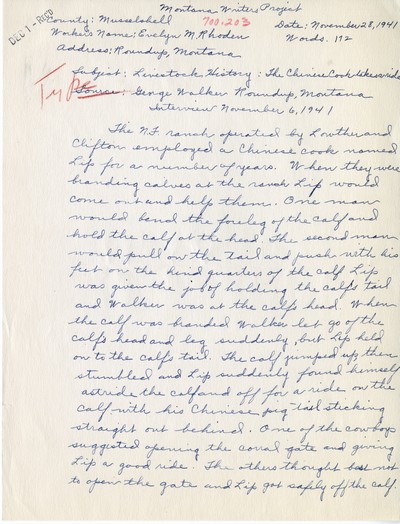 Montana Writers Project
DEC 1 - REC'D
County: Musselshell
700.203
Date: November 28, 1941
Workers Name: Evelyn M. Rhoden
Words. 192
Address: Roundup, Montana
Subject: Livestock History: The Chinese Cook takes a ride
Type
Source: George Walker Roundup, Montana
Interview November 6, 1941
The NF ranch operated by Lowther and
Clifton employed a Chinese cook named
Lip for a number of years. When they were
branding calves at the ranch Lip would
come out and help them. One man
would bend the foreleg of the calf and
hold the calf at the head. The second man
would pull on the tail and push with his
feet on the hind quarters of the calf. Lip
was given the job of holding the calfs tail
and Walker was at the calfs head. When
the calf was branded Walker let go of the
calfs head and leg suddenly, but Lip held
on to the calfs tail. The calf jumped up then
stumbled and Lip suddenly found himself
astride the calf and off for a ride on the
calf with his Chinese pig tail sticking
straight out behind. One of the cowboys
suggested opening the corral gate and giving
Lip a good ride. The others thought best not
to open the gate and Lip got safely off the calf.